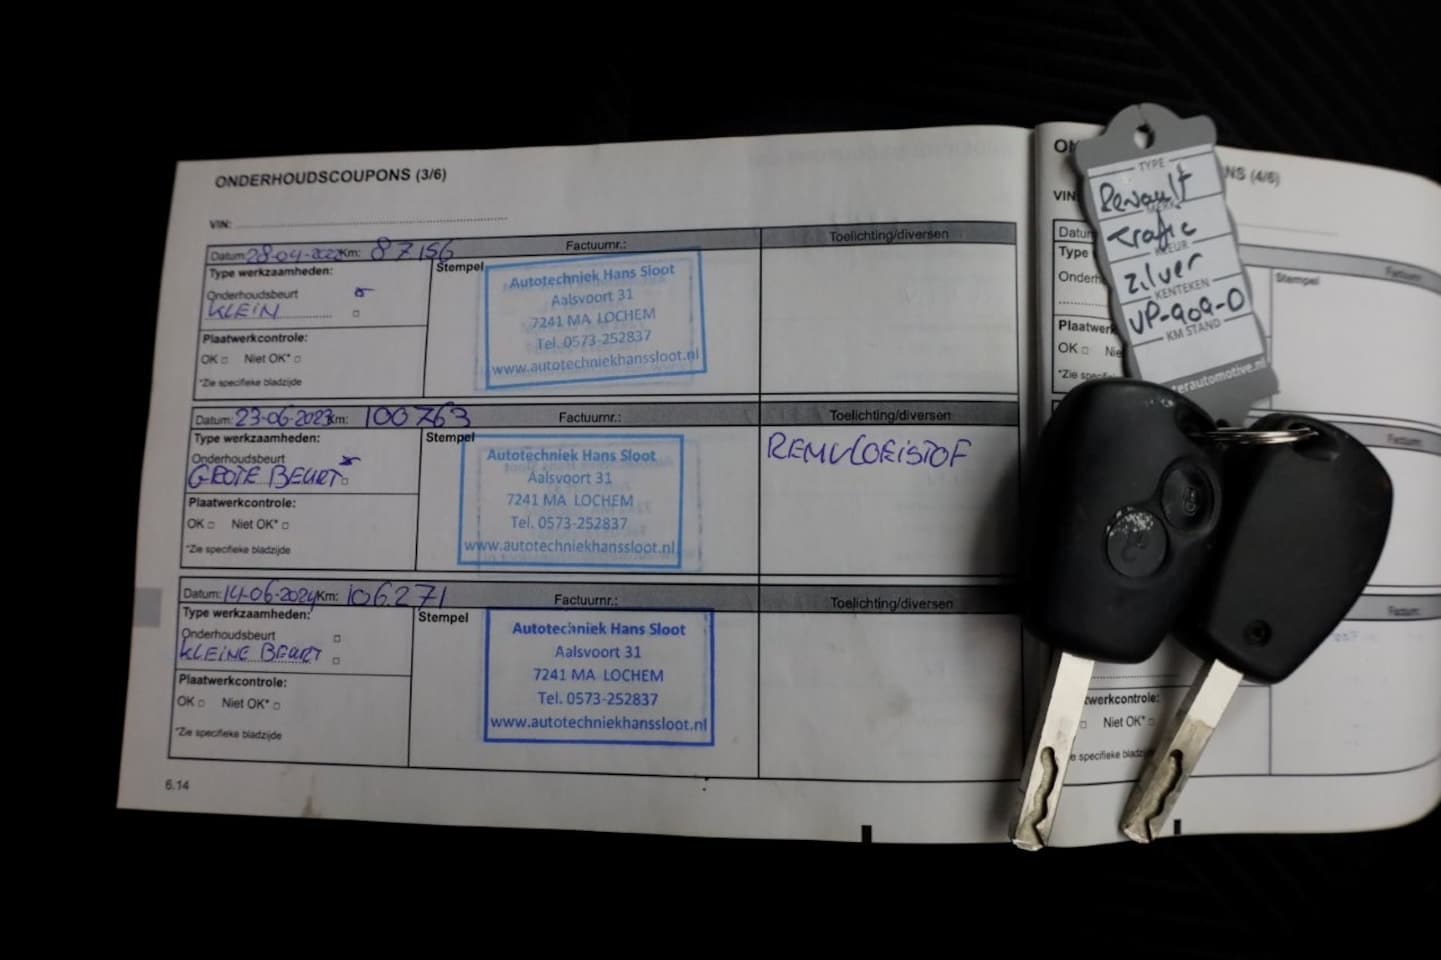 ONDERHOUDSCOUPONS (3/6)
VIN:
Datum: 28-04-2022 Km: 87156 Factuurnr.: Toelichting/diversen
Type werkzaamheden: Stempel
Onderhoudsbeurt
KLEIN
Plaatwerkcontrole:
OK Niet OK*
*Zie specifieke bladzijde
Autotechniek Hans Sloot
Aalsvoort 31
7241 MA LOCHEM
Tel. 0573-252837
www.autotechniekhanssloot.nl
Datum: 23-06-2023 Km: 100763 Factuurnr.: Toelichting/diversen
Type werkzaamheden: Stempel
Onderhoudsbeurt
GROTE BEURT
Plaatwerkcontrole:
OK Niet OK*
*Zie specifieke bladzijde
Autotechniek Hans Sloot
Aalsvoort 31
7241 MA LOCHEM
Tel. 0573-252837
www.autotechniekhanssloot.nl
REMVLOEISTOF
Datum: 14-06-2024 Km: 106.271 Factuurnr.: Toelichting/diversen
Type werkzaamheden: Stempel
Onderhoudsbeurt
KLEINE BEURT
Plaatwerkcontrole:
OK Niet OK*
*Zie specifieke bladzijde
Autotechniek Hans Sloot
Aalsvoort 31
7241 MA LOCHEM
Tel. 0573-252837
www.autotechniekhanssloot.nl
6.14
(4/6)
VIN
Type
Stempel
OK
Niet OK*
TYPE
Renault
Trafic
zilver
KENTEKEN
VP-909-D
KM STAND
terautomotive.nl